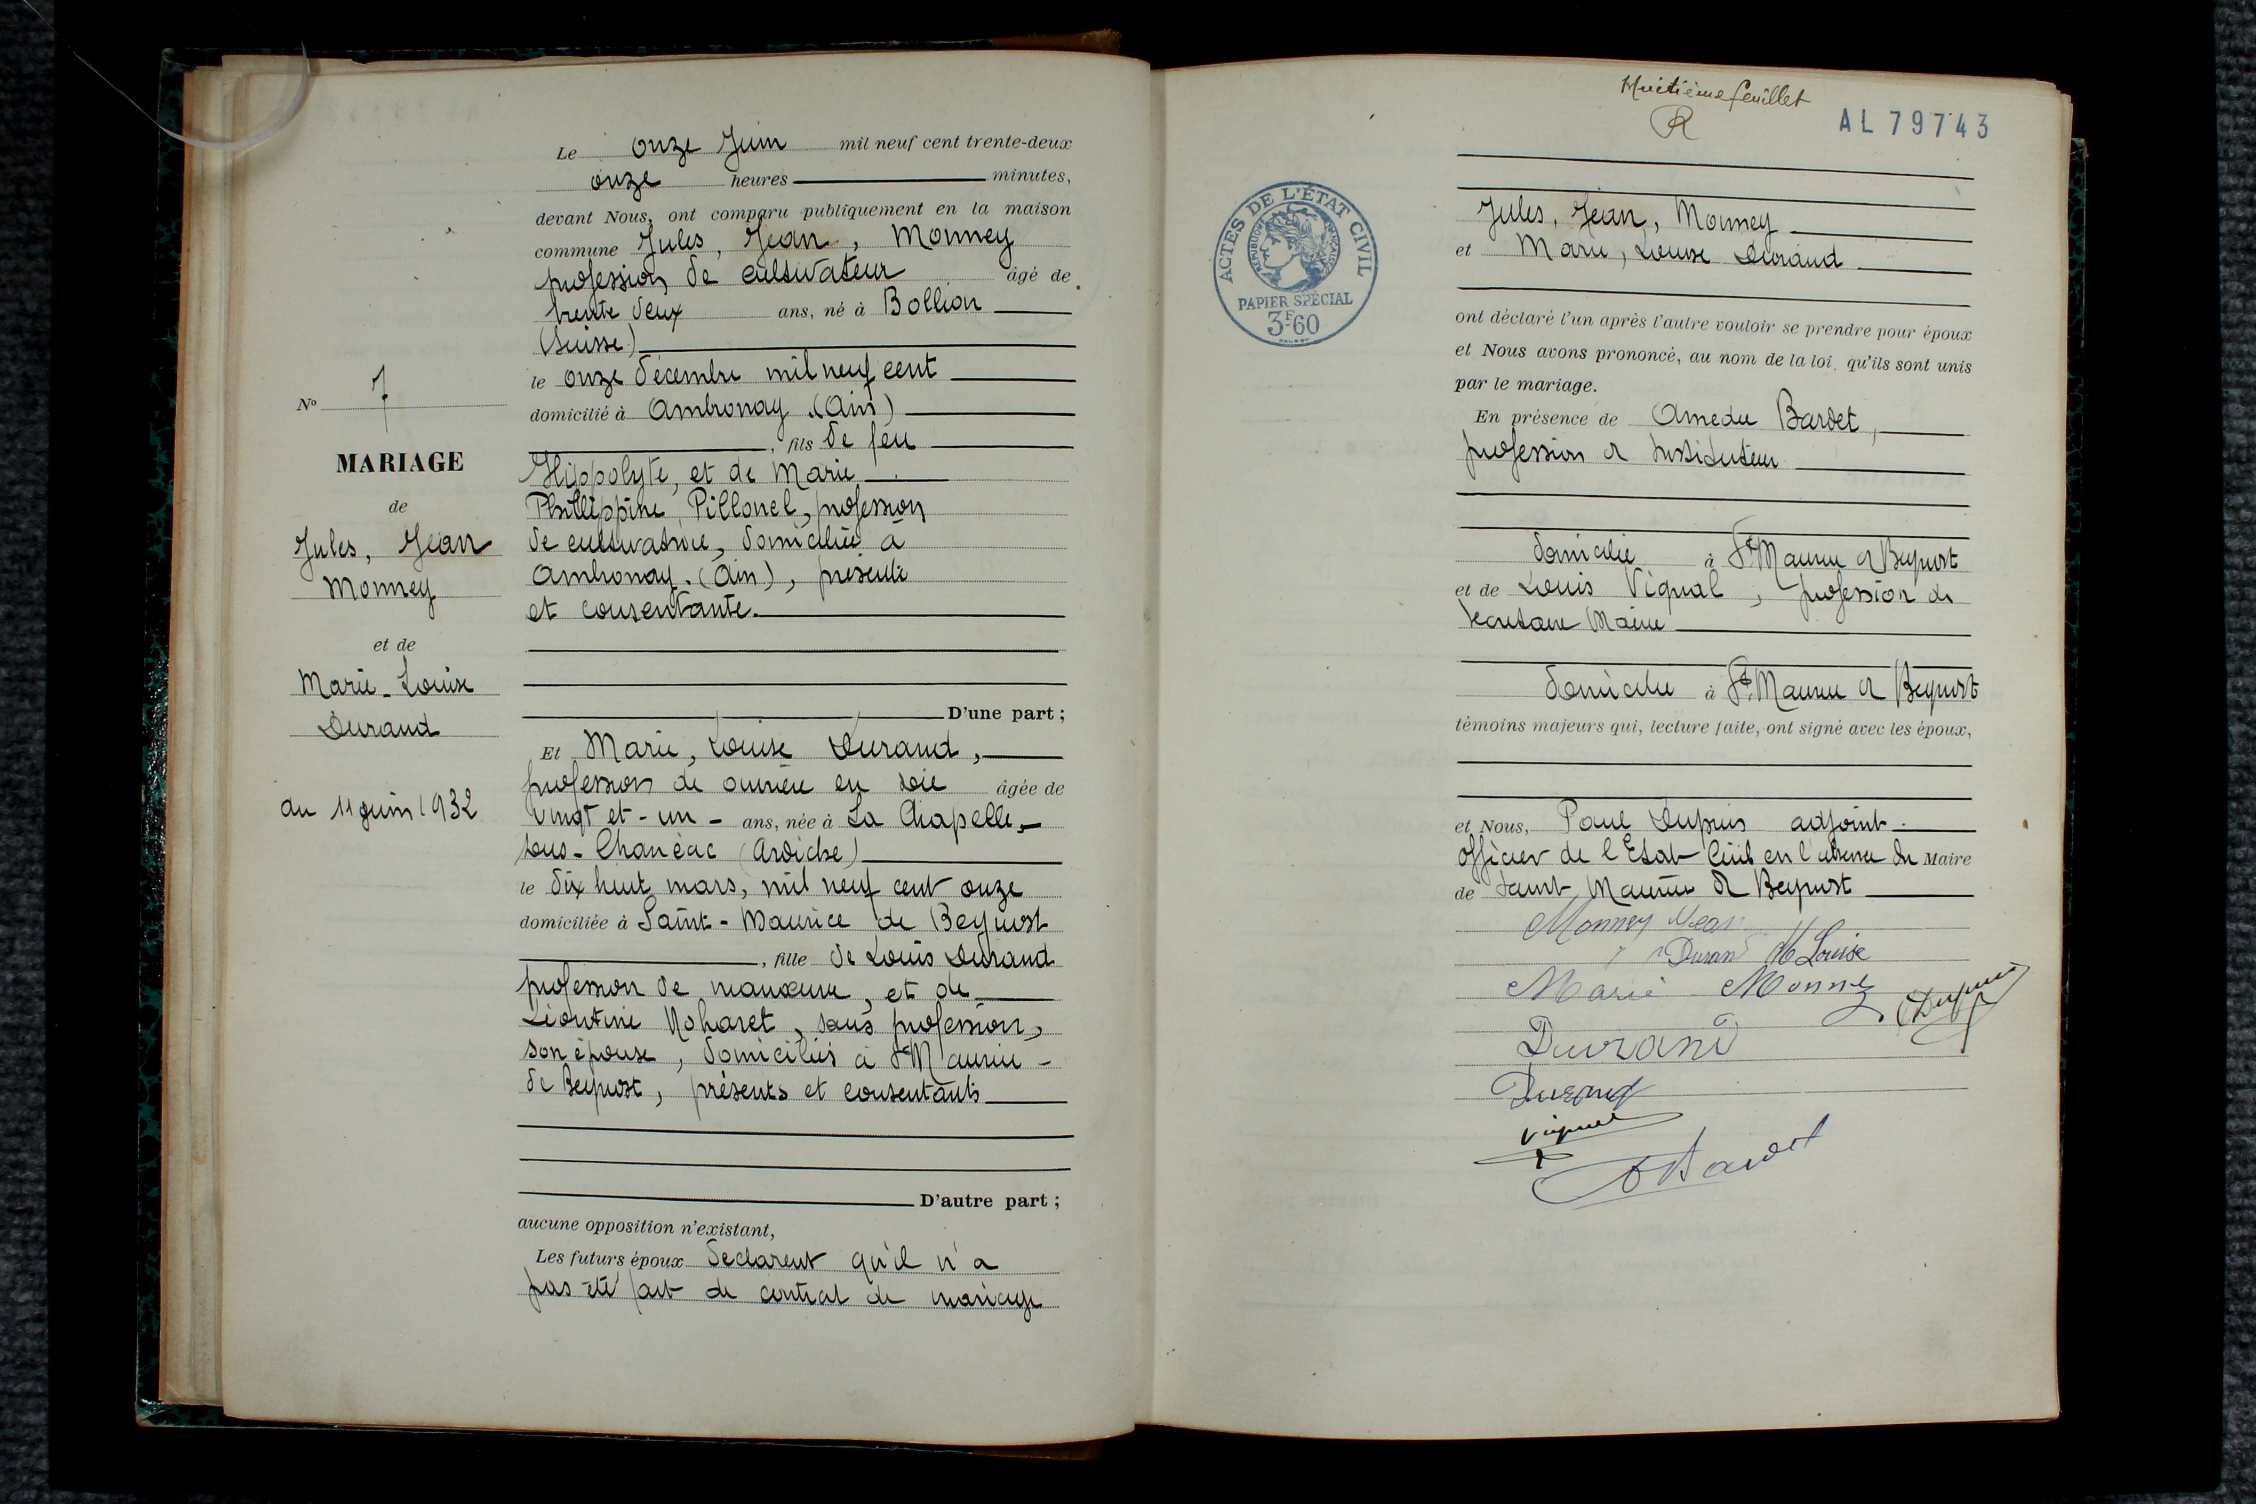 Le onze Juin mil neuf cent trente-deux
onze heures minutes,
devant Nous, ont comparu publiquement en la maison
commune Jules, Jean, Monney
profession de cultivateur âgé de
trente deux ans, né à Bollion
(Suisse)
le onze décembre mil neuf cent
domicilié à Ambronay (Ain)
, fils de feu
Hippolyte, et de Marie
Philippine Pillonel, profession
de cultivatrice, domiciliée à
Ambronay. (Ain), présente
et consentante.
D'une part ;
Et Marie, Louise Durand,
profession de ouvrière en soie âgée de
vingt et - un - ans, née à La Chapelle -
sous - Chanéac (Ardèche)
le dix huit mars, mil neuf cent onze
domiciliée à Saint - Maurice de Beynost
, fille de Louis Durand
profession de manœuvre, et de
Léontine Noharet, sans profession,
son épouse, domiciliés à St Maurice -
de Beynost, présents et consentants
D'autre part ;
aucune opposition n'existant,
Les futurs époux déclarent qu'il n'a
pas été fait de contrat de mariage
No 7
MARIAGE
de
Jules, Jean
Monney
et de
Marie - Louise
Durand
du 11 juin 1932
Huitième feuillet
R
AL 79743
ACTES DE L'ÉTAT CIVIL
RÉPUBLIQUE FRANÇAISE
PAPIER SPÉCIAL
3F60
Jules, Jean, Monney
et Marie, Louise Durand
ont déclaré l'un après l'autre vouloir se prendre pour époux
et Nous avons prononcé, au nom de la loi, qu'ils sont unis
par le mariage.
En présence de Amedee Bardet,
profession d Instituteur
domicilié à St Maurice d Beynost
et de Louis Vignal, profession de
secretaire Mairie
domicilie à St Maurice d Beynost
témoins majeurs qui, lecture faite, ont signé avec les époux,
et Nous, Paul Dupuis adjoint.
Officier de l'Etat Civil en l'absence du Maire
de Saint Maurice d Beynost
Monney Jean
Durand M Louise
Marie Monney
Dupuis
Durand
Durand
Vignal
Bardet